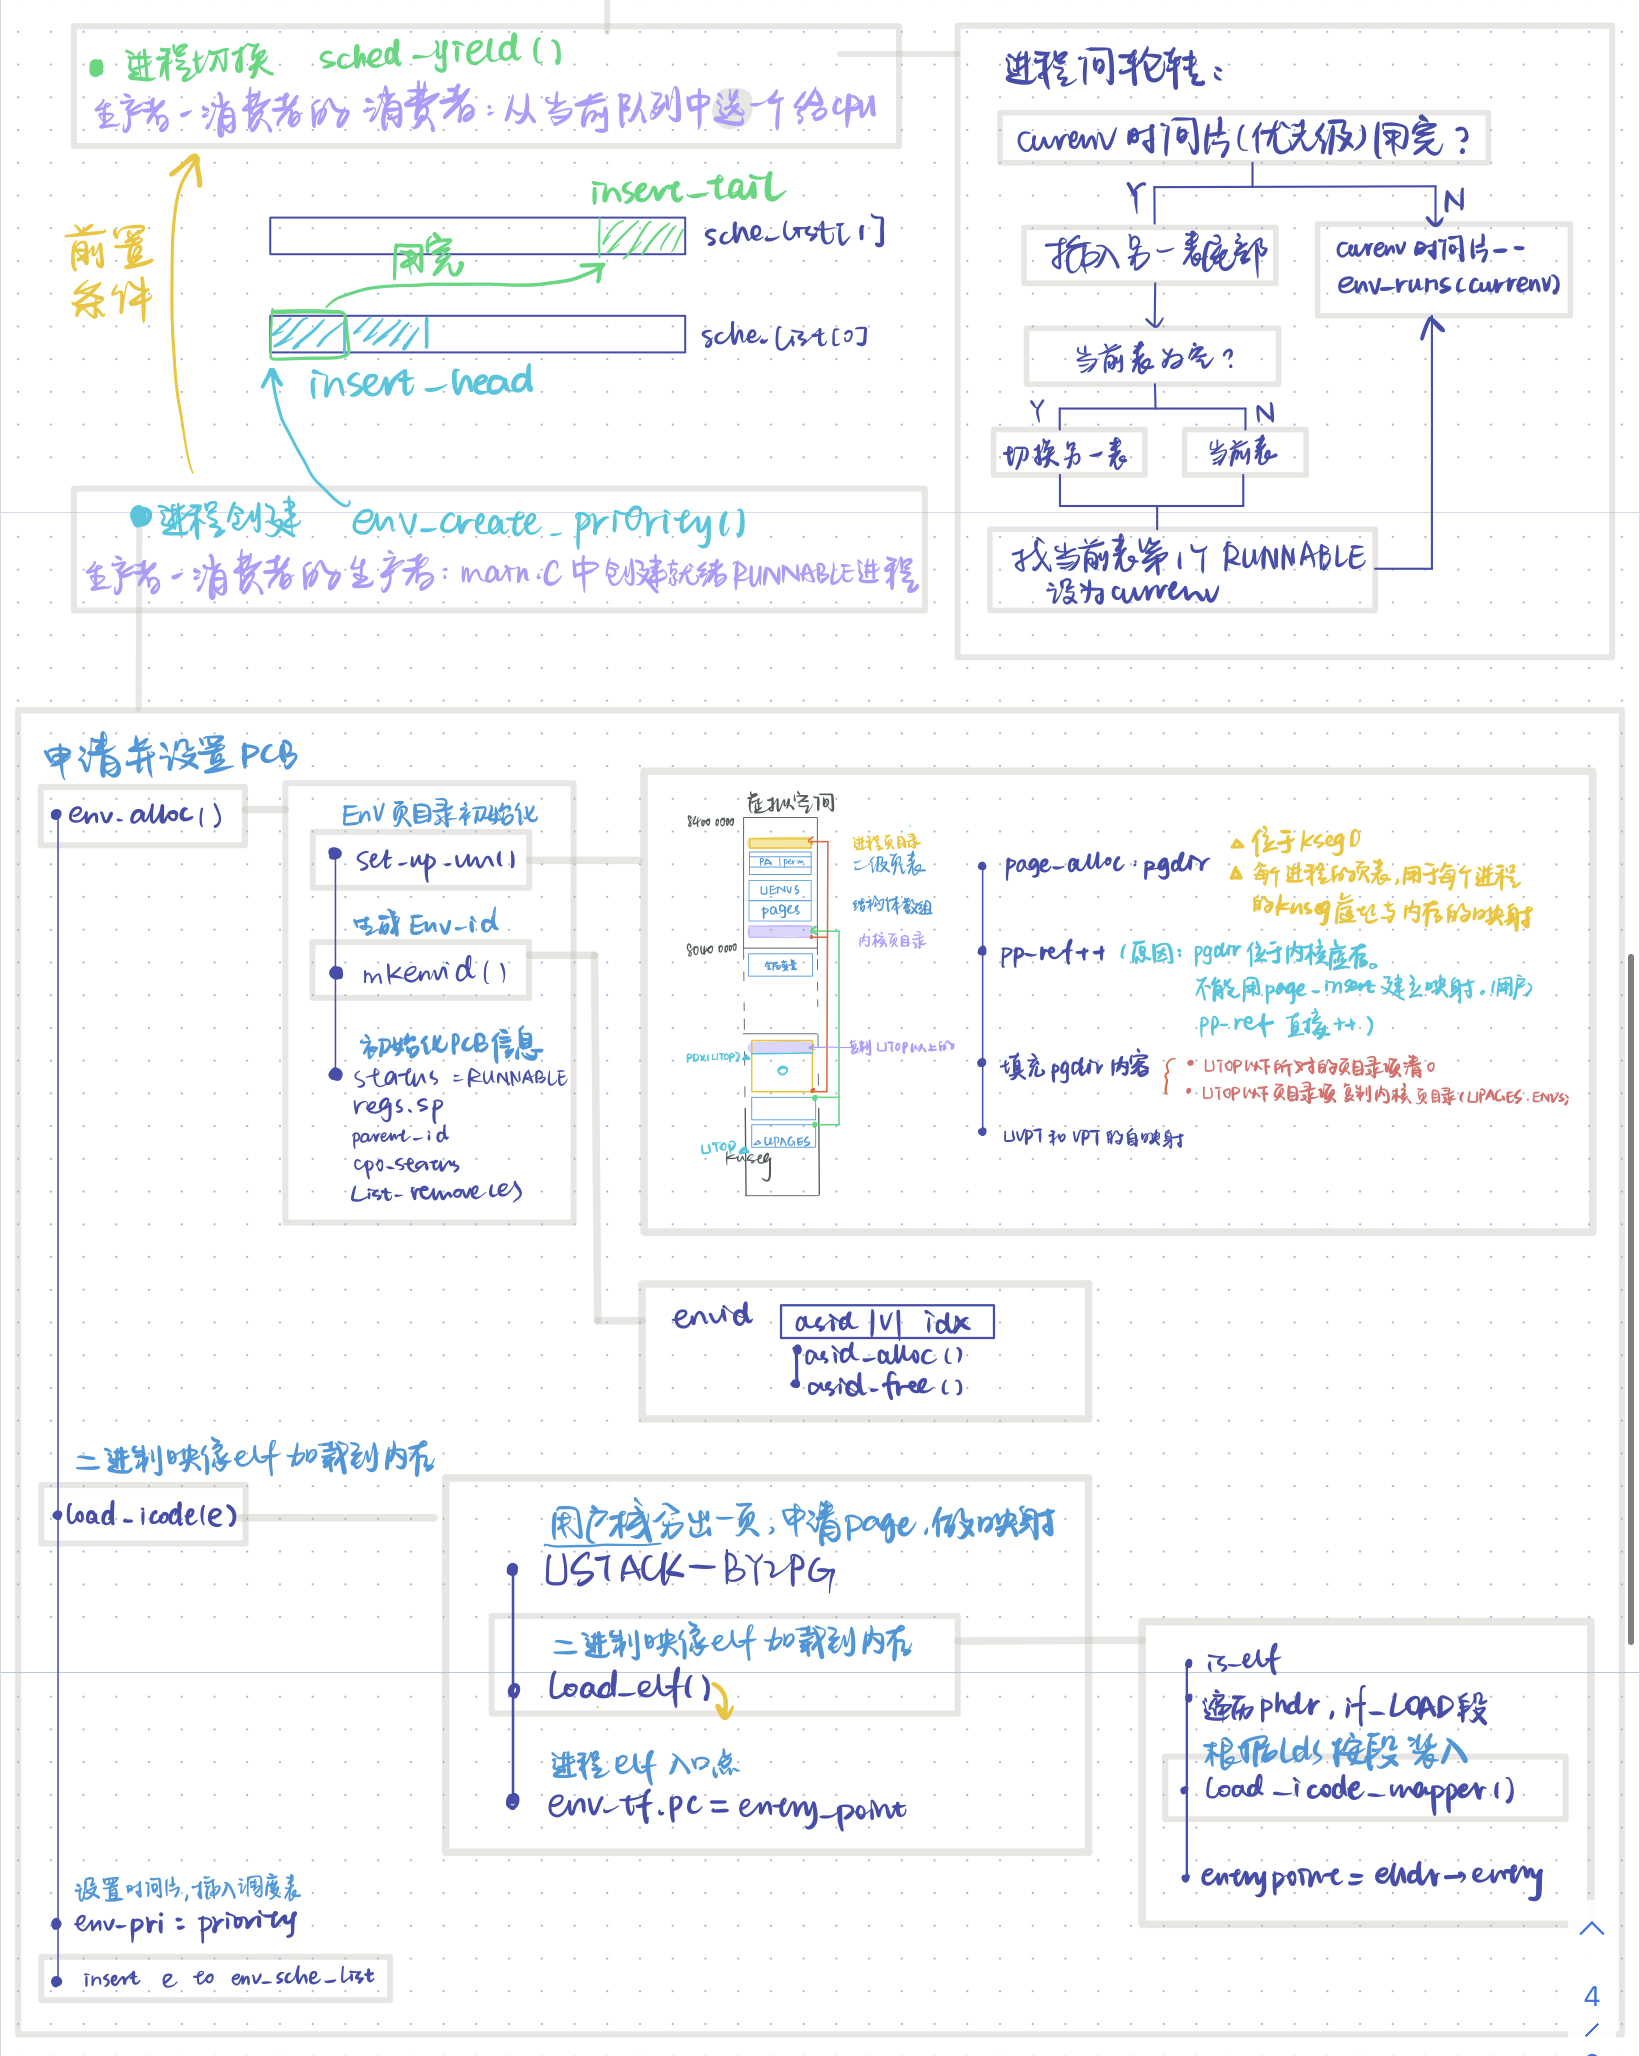 进程切换 sched_yield()
生产者-消费者的 消费者：从当前队列中选一个给cpu
前置
条件
insert_tail
sche_list[1]
用完
sche_list[0]
insert_head
进程创建 env_create_priority()
生产者-消费者的生产者：main.c中创建就绪RUNNABLE进程
进程间轮转：
curenv 时间片(优先级)用完？
Y
N
插入另一表尾部
curenv 时间片--
env_runs(currenv)
当前表为空？
Y
N
切换另一表
当前表
找当前表第1个 RUNNABLE
设为currenv
申请并设置PCB
env_alloc()
Env 页目录初始化
set_up_vm()
生成 Env_id
mkenvid()
初始化PCB信息
status = RUNNABLE
regs.sp
parent_id
cp0_status
List_remove(e)
虚拟空间
8400 0000
进程页目录
PA | perm
二级页表
UENVS
结构体数组
pages
内核页目录
8040 0000
全局变量
PDX(UTOP)
复制 UTOP以上的
0
UPAGES
UTOP
kuseg
page_alloc : pgdir
位于kseg0
每个进程的页表,用于每个进程
的kuseg虚址与内存的映射
pp_ref++ (原因: pgdir 位于内核虚存。
不能用page_insert 建立映射.(用户)
pp_ref 直接++)
填充pgdir 内容
UTOP以下所对的页目录项清0
UTOP以下页目录项复制内核页目录(UPAGES.ENVS)
UVPT 和 VPT 的自映射
envid
asid |1| idx
asid_alloc()
asid_free()
二进制映像elf 加载到内存
load_icode(e)
用户栈分出一页,申请page,做映射
USTACK-BY2PG
二进制映像elf 加载到内存
load_elf()
进程 elf 入口点
env_tf.pc = entry_point
is_elf
遍历phdr, if_LOAD段
根据lds 按段装入
load_icode_mapper()
entrypoint = ehdr→entry
设置时间片,插入调度表
env_pri = priority
insert e to env_sche_list
4
/